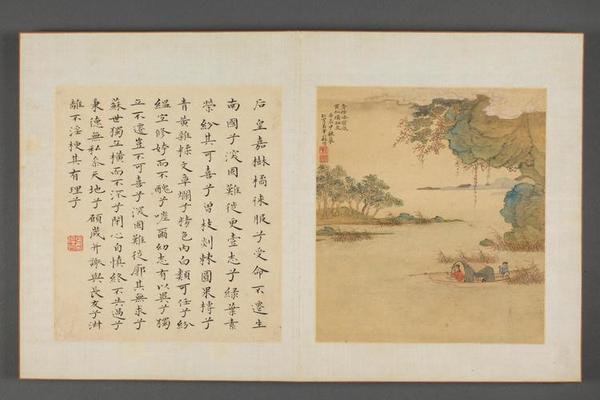 后皇嘉樹橘徠服兮受命不遷生
南國兮深固難徙更壹志兮緑葉素
榮紛其可喜兮曾枝剡棘圓果摶兮
青黄雜糅文章爛兮精色内白類可任兮紛
緼宜修姱而不醜兮嗟爾幼志有以異兮獨
立不遷豈不可喜兮深固難徙廓其無求兮
蘇世獨立横而不流兮閉心自慎終不失過兮
秉德無私參天地兮願歲并謝與長友兮淑
離不淫梗其有理兮